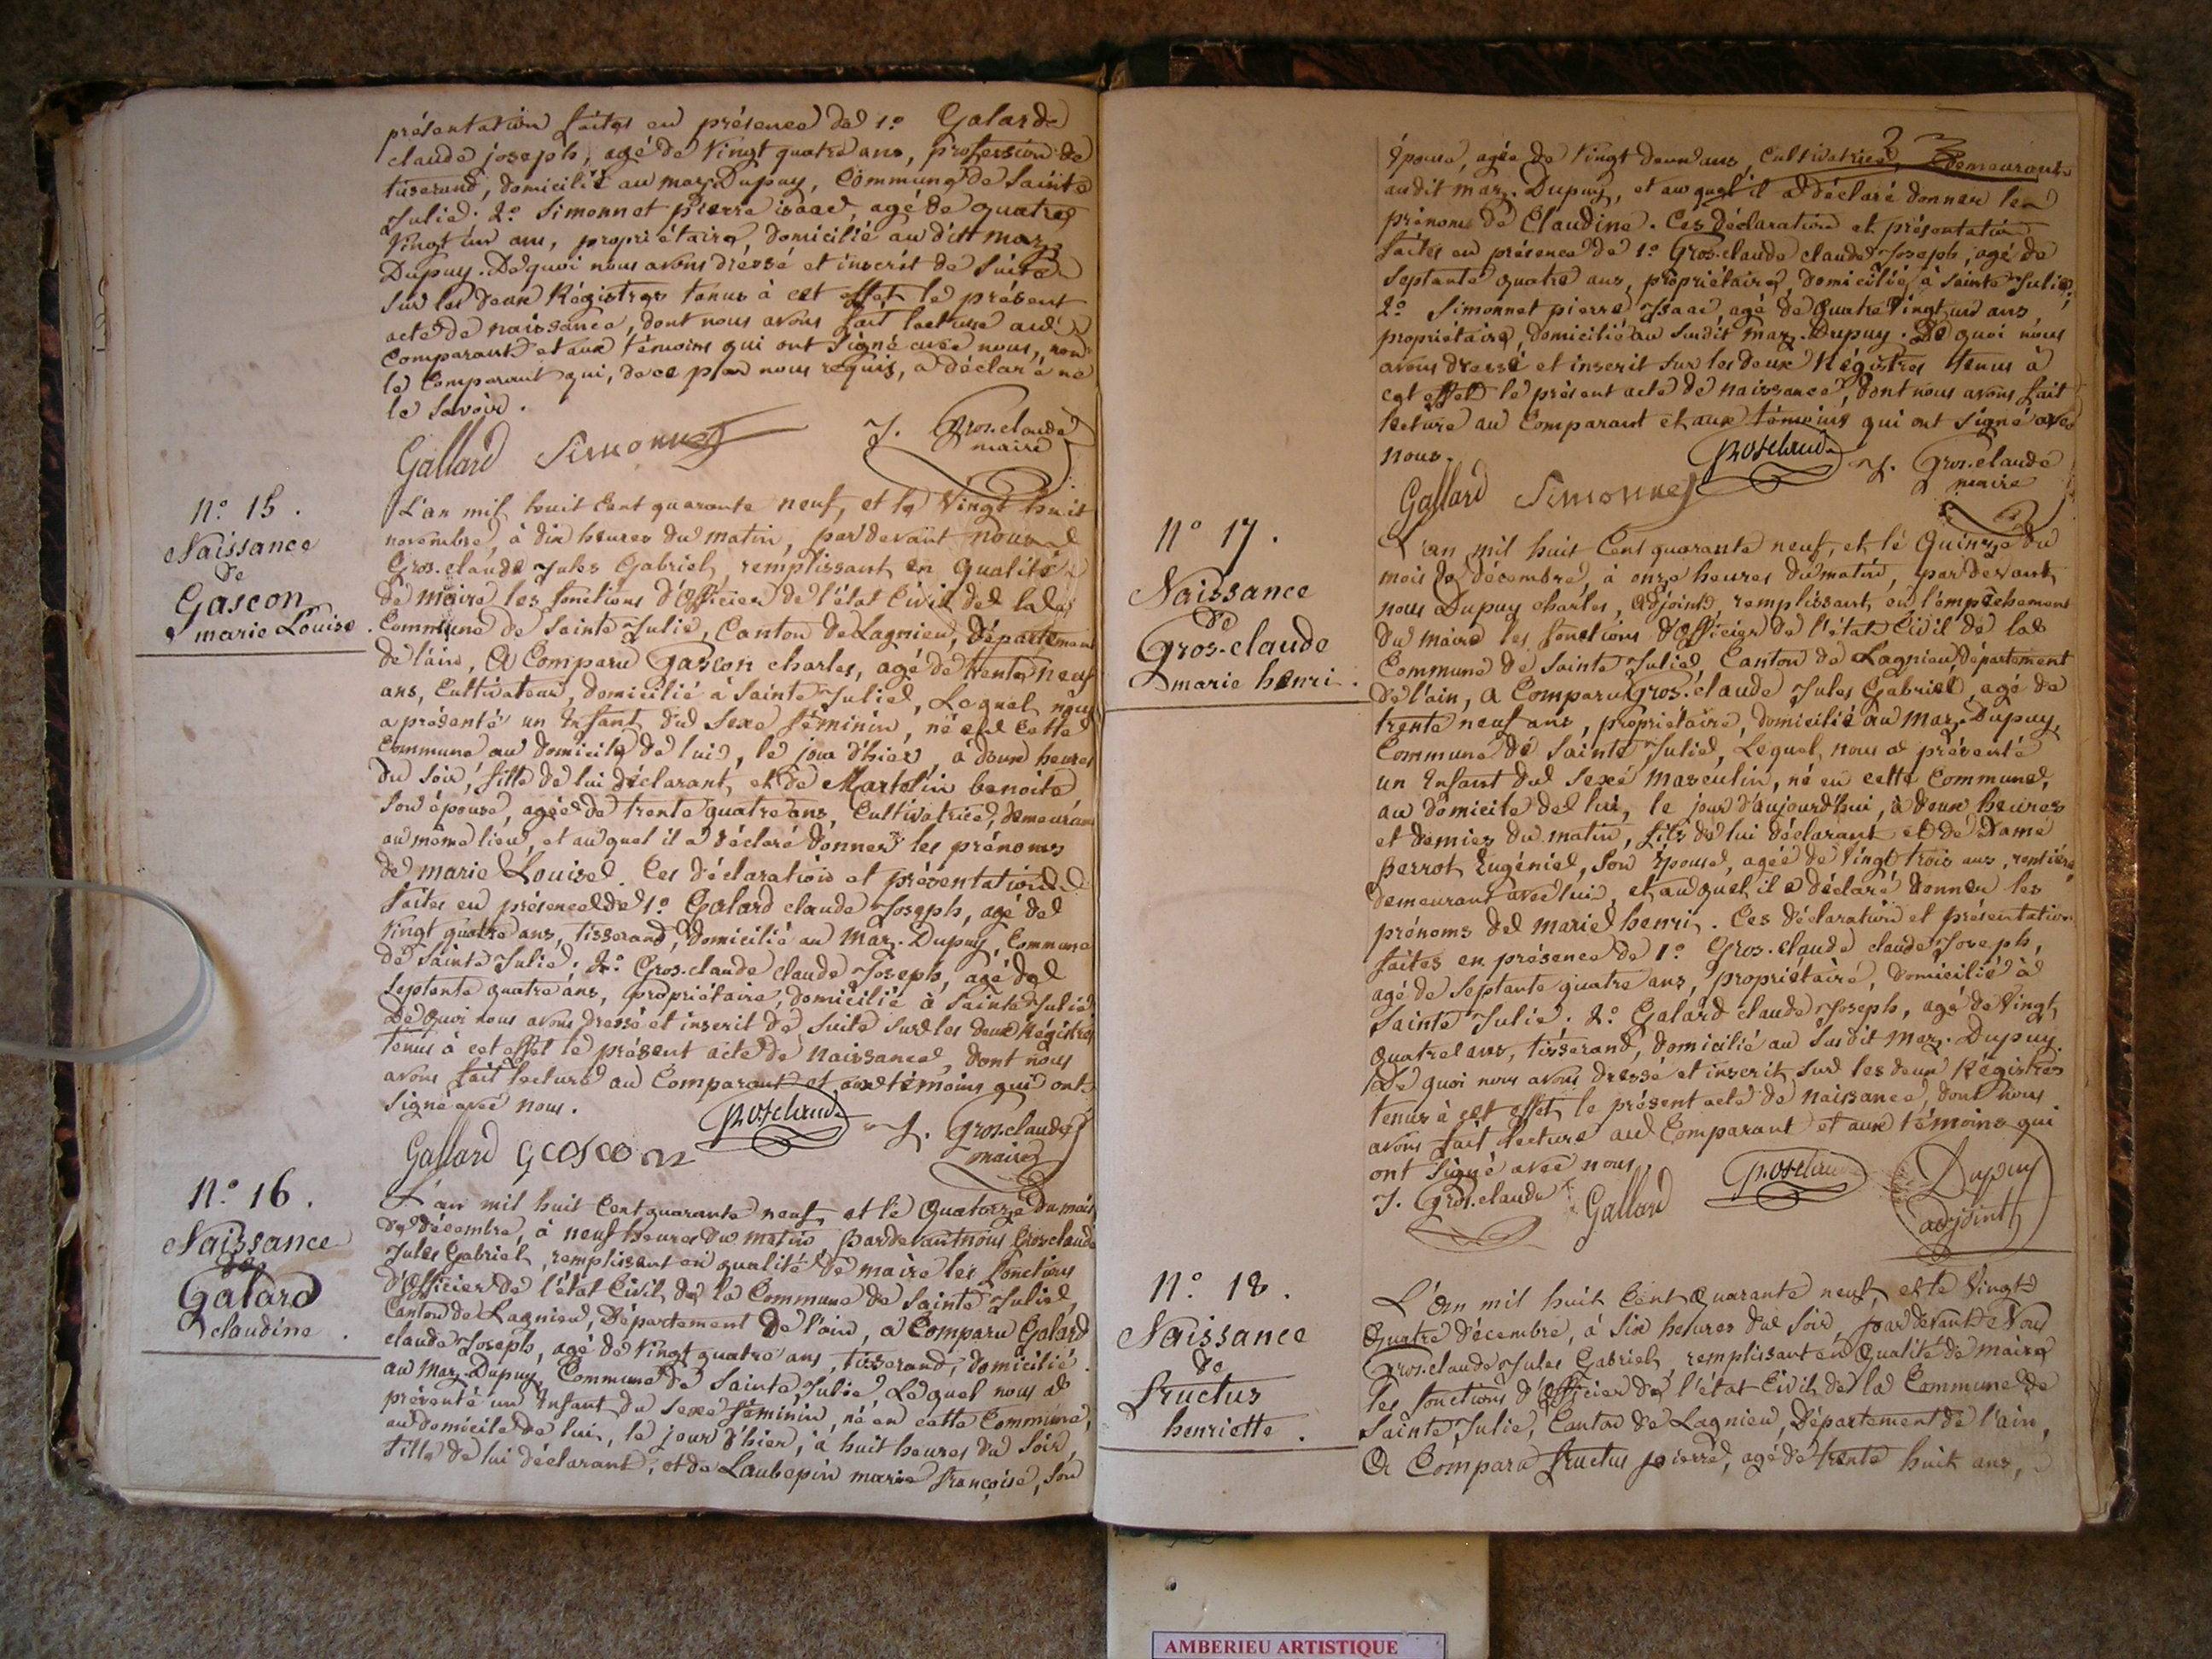 présentation faites en présence de 1° Galard
claude joseph, agé de Vingt quatre ans, profession de
tisserand, domicilié au maz. Dupuy, Commune de Sainte
Julie. 2° Simonnet pierre isaac, agé de quatre
Vingt un ans, propriétaire, domicilié au dit maz.
Dupuy. De quoi nous avons dressé et inscrit de Suite
Sur les deux Régistres tenus à cet effet le présent
acte de naissance, dont nous avons fait lecture au
Comparant et aux témoins qui ont Signé avec nous, non
le Comparant qui, de ce par nous requis, a déclaré ne
le Savoir.
Gallard Simonnet J. Gros.claude
maire
N° 15.
Naissance
de
Gascon
marie Louise.
L'an mil huit Cent quarante neuf, et le Vingt huit
novembre, à dix heures du matin, pardevant nous
Gros.claude Jules Gabriel, remplissant en qualité
de maire les fonctions d'Officier de l'état Civil de la
Commune de Sainte Julie, Canton de Lagnieu, Département
de l'ain, A Comparu Gascon charles, agé de trente neuf
ans, Cultivateur, domicilié à Sainte Julie, Lequel nous
a présenté un Enfant du Sexe féminin, né en Cette
Commune au domicile de lui, le jour d'hier, à deux heures
du Soir, fille de lui déclarant, et de Martelin benoite
Son épouse, agée de trente quatre ans, Cultivatrice, demeurant
au même lieu, et auquel il a déclaré donner les prénoms
de marie Louise. Ces déclaration et présentation
faites en présence de 1° Galard claude Joseph, agé de
Vingt quatre ans, tisserand, domicilié au Maz. Dupuy, Commune
de Sainte Julie; 2° Gros.claude claude Joseph, agé de
Septante quatre ans, propriétaire, domicilié à Sainte Julie
De quoi nous avons dressé et inscrit de Suite Sur les deux Régistres
tenus à cet effet le présent acte de Naissance, dont nous
avons fait lecture au Comparant et aux témoins qui ont
Signé avec nous.
Gallard Gascon Grosclaude J. Gros.claude
maire
N° 16.
Naissance
de
Galard
claudine.
L'an mil huit Cent quarante neuf, et le Quatorze du mois
de décembre, à neuf heures du matin, Pardevant nous Grosclaude
Jules Gabriel, remplissant en qualité de maire les fonctions
d'Officier de l'état Civil de la Commune de Sainte Julie,
Canton de Lagnieu, Département de l'ain, a Comparu Galard
claude Joseph, agé de Vingt quatre ans, tisserand, domicilié
au Maz. Dupuy, Commune de Sainte Julie, Lequel nous a
présenté un Enfant du Sexe féminin, né en cette Commune,
au domicile de lui, le jour d'hier, à huit heures du Soir,
fille de lui déclarant, et de Laubepin marie françoise, Son
Épouse, agée de Vingt deux ans, Cultivatrice, demeurant
audit maz. Dupuy, et auquel il a déclaré donner le
prénom de Claudine. Ces déclaration et présentation
faites en présence de 1° Gros.claude claude Joseph, agé de
Septante quatre ans, propriétaire, domicilié à Sainte Julie,
2° Simonnet pierre Isaac, agé de Quatre Vingt un ans,
propriétaire, domicilié au Sudit maz. Dupuy. De quoi nous
avons dressé et inscrit Sur les deux Régistres tenus à
cet effet le présent acte de naissance, dont nous avons fait
lecture au Comparant et aux témoins qui ont Signé avec
nous.
Gallard Simonnet Grosclaude J. Gros.claude
maire
N° 17.
Naissance
de
Gros-claude
marie henri.
L'an mil huit Cent quarante neuf, et le Quinze du
mois de décembre, à onze heures du matin, pardevant
nous Dupuy charles, Adjoint, remplissant, en l'empêchement
du maire les fonctions d'Officier de l'état Civil de la
Commune de Sainte Julie, Canton de Lagnieu, Département
de l'ain, a Comparu Gros.claude Jules Gabriel, agé de
trente neuf ans, propriétaire, domicilié au Maz. Dupuy,
Commune de Sainte Julie, Lequel, nous a présenté
un Enfant du Sexe Masculin, né en cette Commune,
au domicile de lui, le jour d'aujourd'hui, à deux heures
et demies du matin, fils de lui déclarant et de Dame
Perrot Eugénie, Son Épouse, agée de Vingt trois ans, rentière
demeurant avec lui, et auquel il a déclaré donner les
prénoms de marie henri. Ces déclaration et présentation
faites en présence de 1° Gros.claude claude Joseph,
agé de Septante quatre ans, propriétaire, domicilié à
Sainte Julie; 2° Galard claude Joseph, agé de Vingt
Quatre ans, tisserand, domicilié au Susdit Maz. Dupuy.
De quoi nous avons dressé et inscrit, Sur les deux Régistres
tenus à cet effet, le présent acte de naissance, dont nous
avons fait lecture au Comparant et aux témoins qui
ont Signé avec nous.
J. Gros.claude Gallard Grosclaude Dupuy
adjoint
N° 18.
Naissance
de
fructus
henriette.
L'an mil huit Cent Quarante neuf, et le Vingt
Quatre décembre, à Six heures du Soir, pardevant Nous
Gros.claude Jules Gabriel, remplissant en Qualité de maire
les fonctions d'Officier de l'état Civil de la Commune de
Sainte Julie, Canton de Lagnieu, Département de l'ain,
A Comparu fructus pierre, agé de trente huit ans,
AMBERIEU ARTISTIQUE